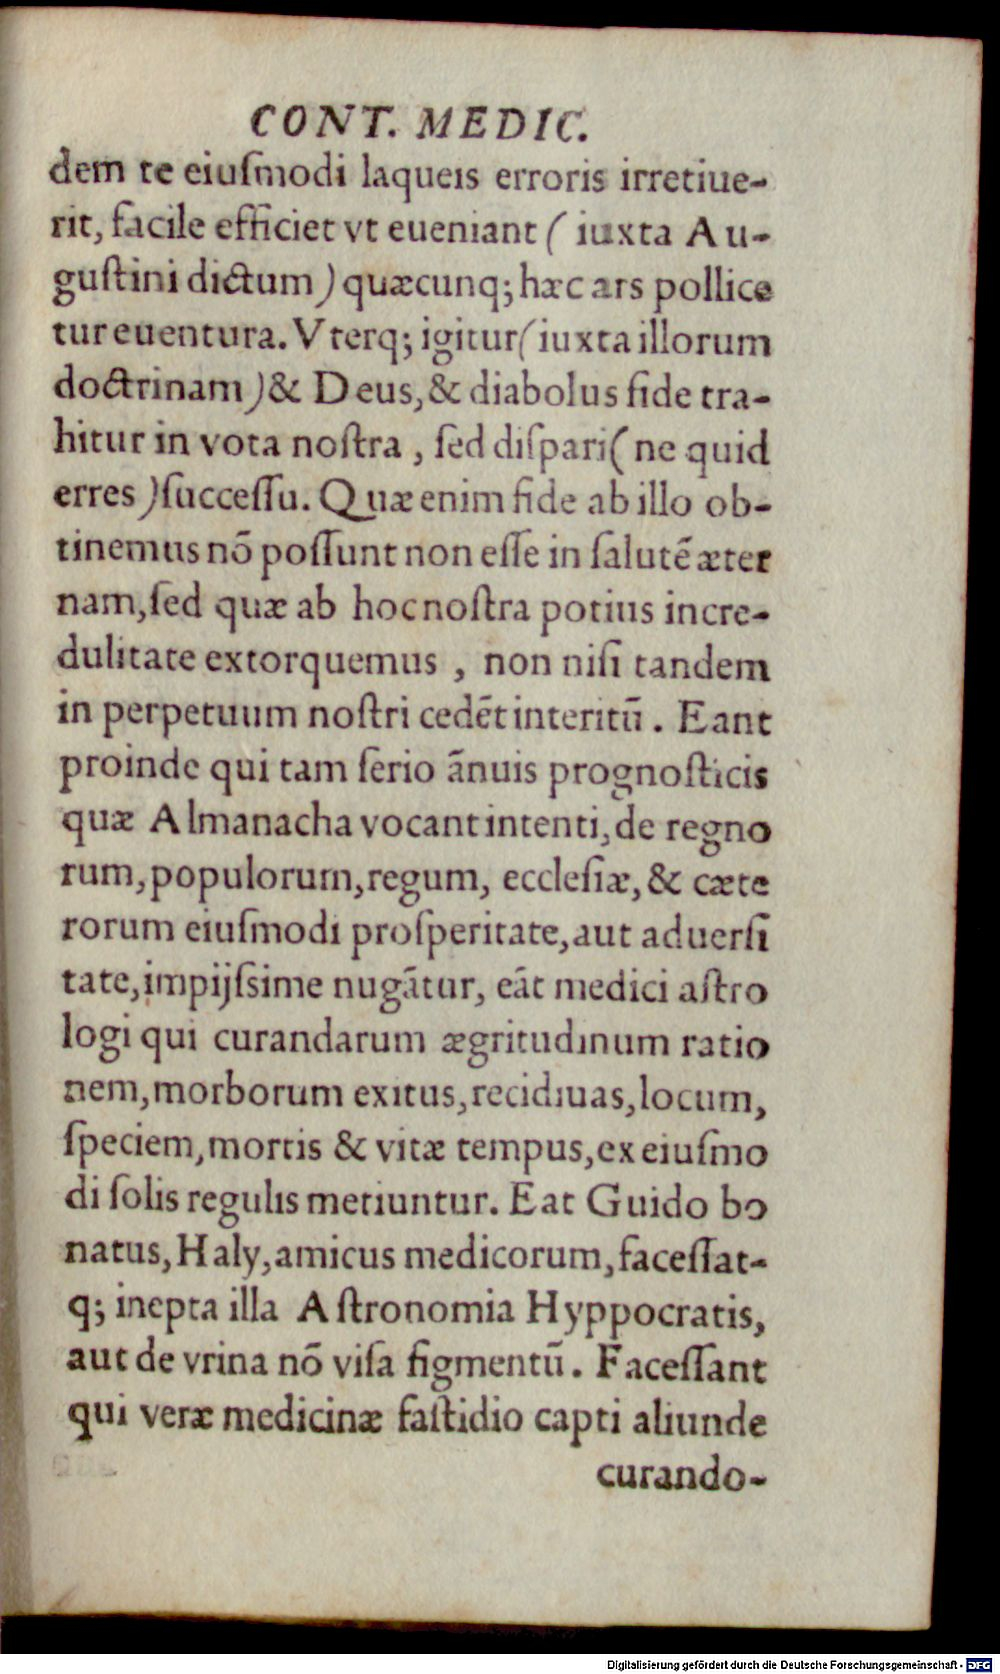 CONT. MEDIC.
dem te eiuſmodi laqueis erroris irretiue-
rit, facile efficiet vt eueniant ( iuxta Au-
guſtini dictum ) quæcunq; hæc ars pollice
tur euentura. Vterq; igitur ( iuxta illorum
doctrinam ) & Deus, & diabolus fide tra-
hitur in vota noſtra , ſed diſpari ( ne quid
erres ) ſucceſſu. Quæ enim fide ab illo ob-
tinemus nō poſſunt non eſſe in ſalutē æter
nam, ſed quæ ab hoc noſtra potius incre-
dulitate extorquemus , non niſi tandem
in perpetuum noſtri cedēt interitū . Eant
proinde qui tam ſerio ānuis prognoſticis
quæ Almanacha vocant intenti, de regno
rum, populorum, regum, eccleſiæ, & cæte
rorum eiuſmodi proſperitate, aut aduerſi
tate, impijſsime nugātur, eāt medici aſtro
logi qui curandarum ægritudinum ratio
nem, morborum exitus, recidiuas, locum,
ſpeciem, mortis & vitæ tempus, ex eiuſmo
di ſolis regulis metiuntur. Eat Guido bo
natus, Haly, amicus medicorum, faceſſat-
q; inepta illa Aſtronomia Hyppocratis,
aut de vrina nō viſa figmentū . Faceſſant
qui veræ medicinæ faſtidio capti aliunde
curando-
Digitalisierung gefördert durch die Deutsche Forschungsgemeinschaft - DFG